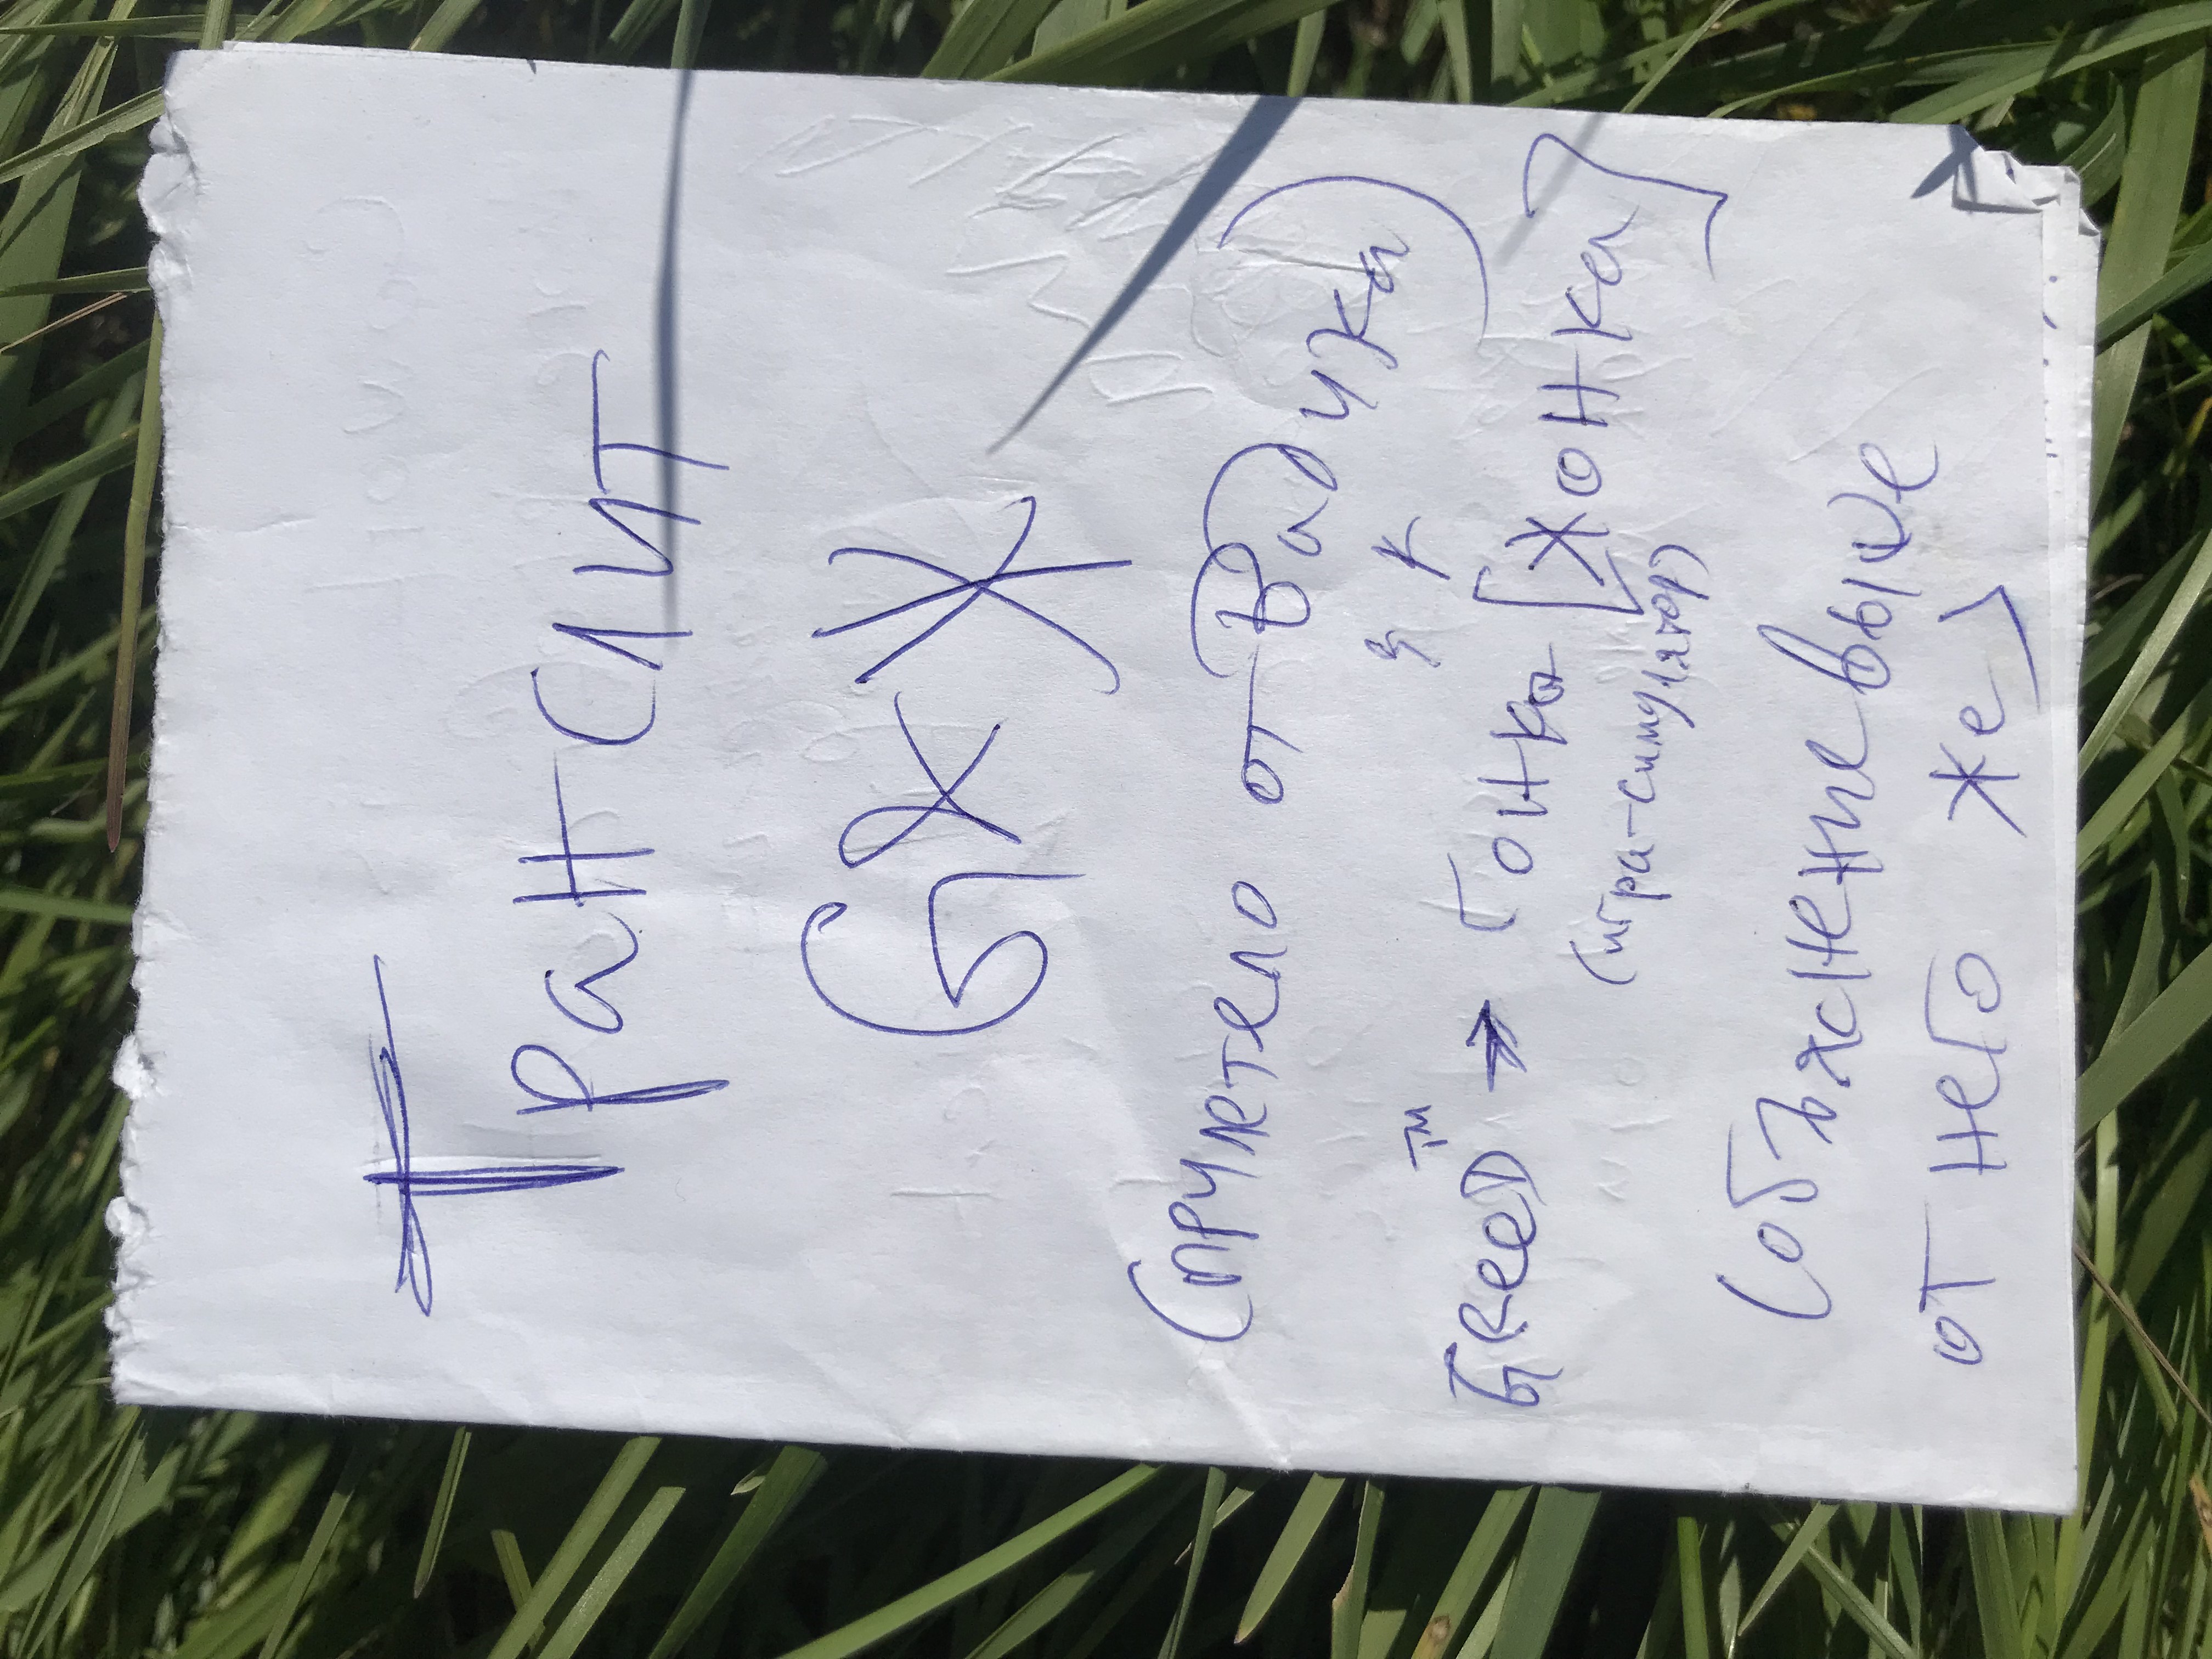 Транслит
G&Ж
(прилетело от Вадика)
я к
GReeD™ → гонка [жонка]
(игра-симулятор)
(объяснение выше
от него же)